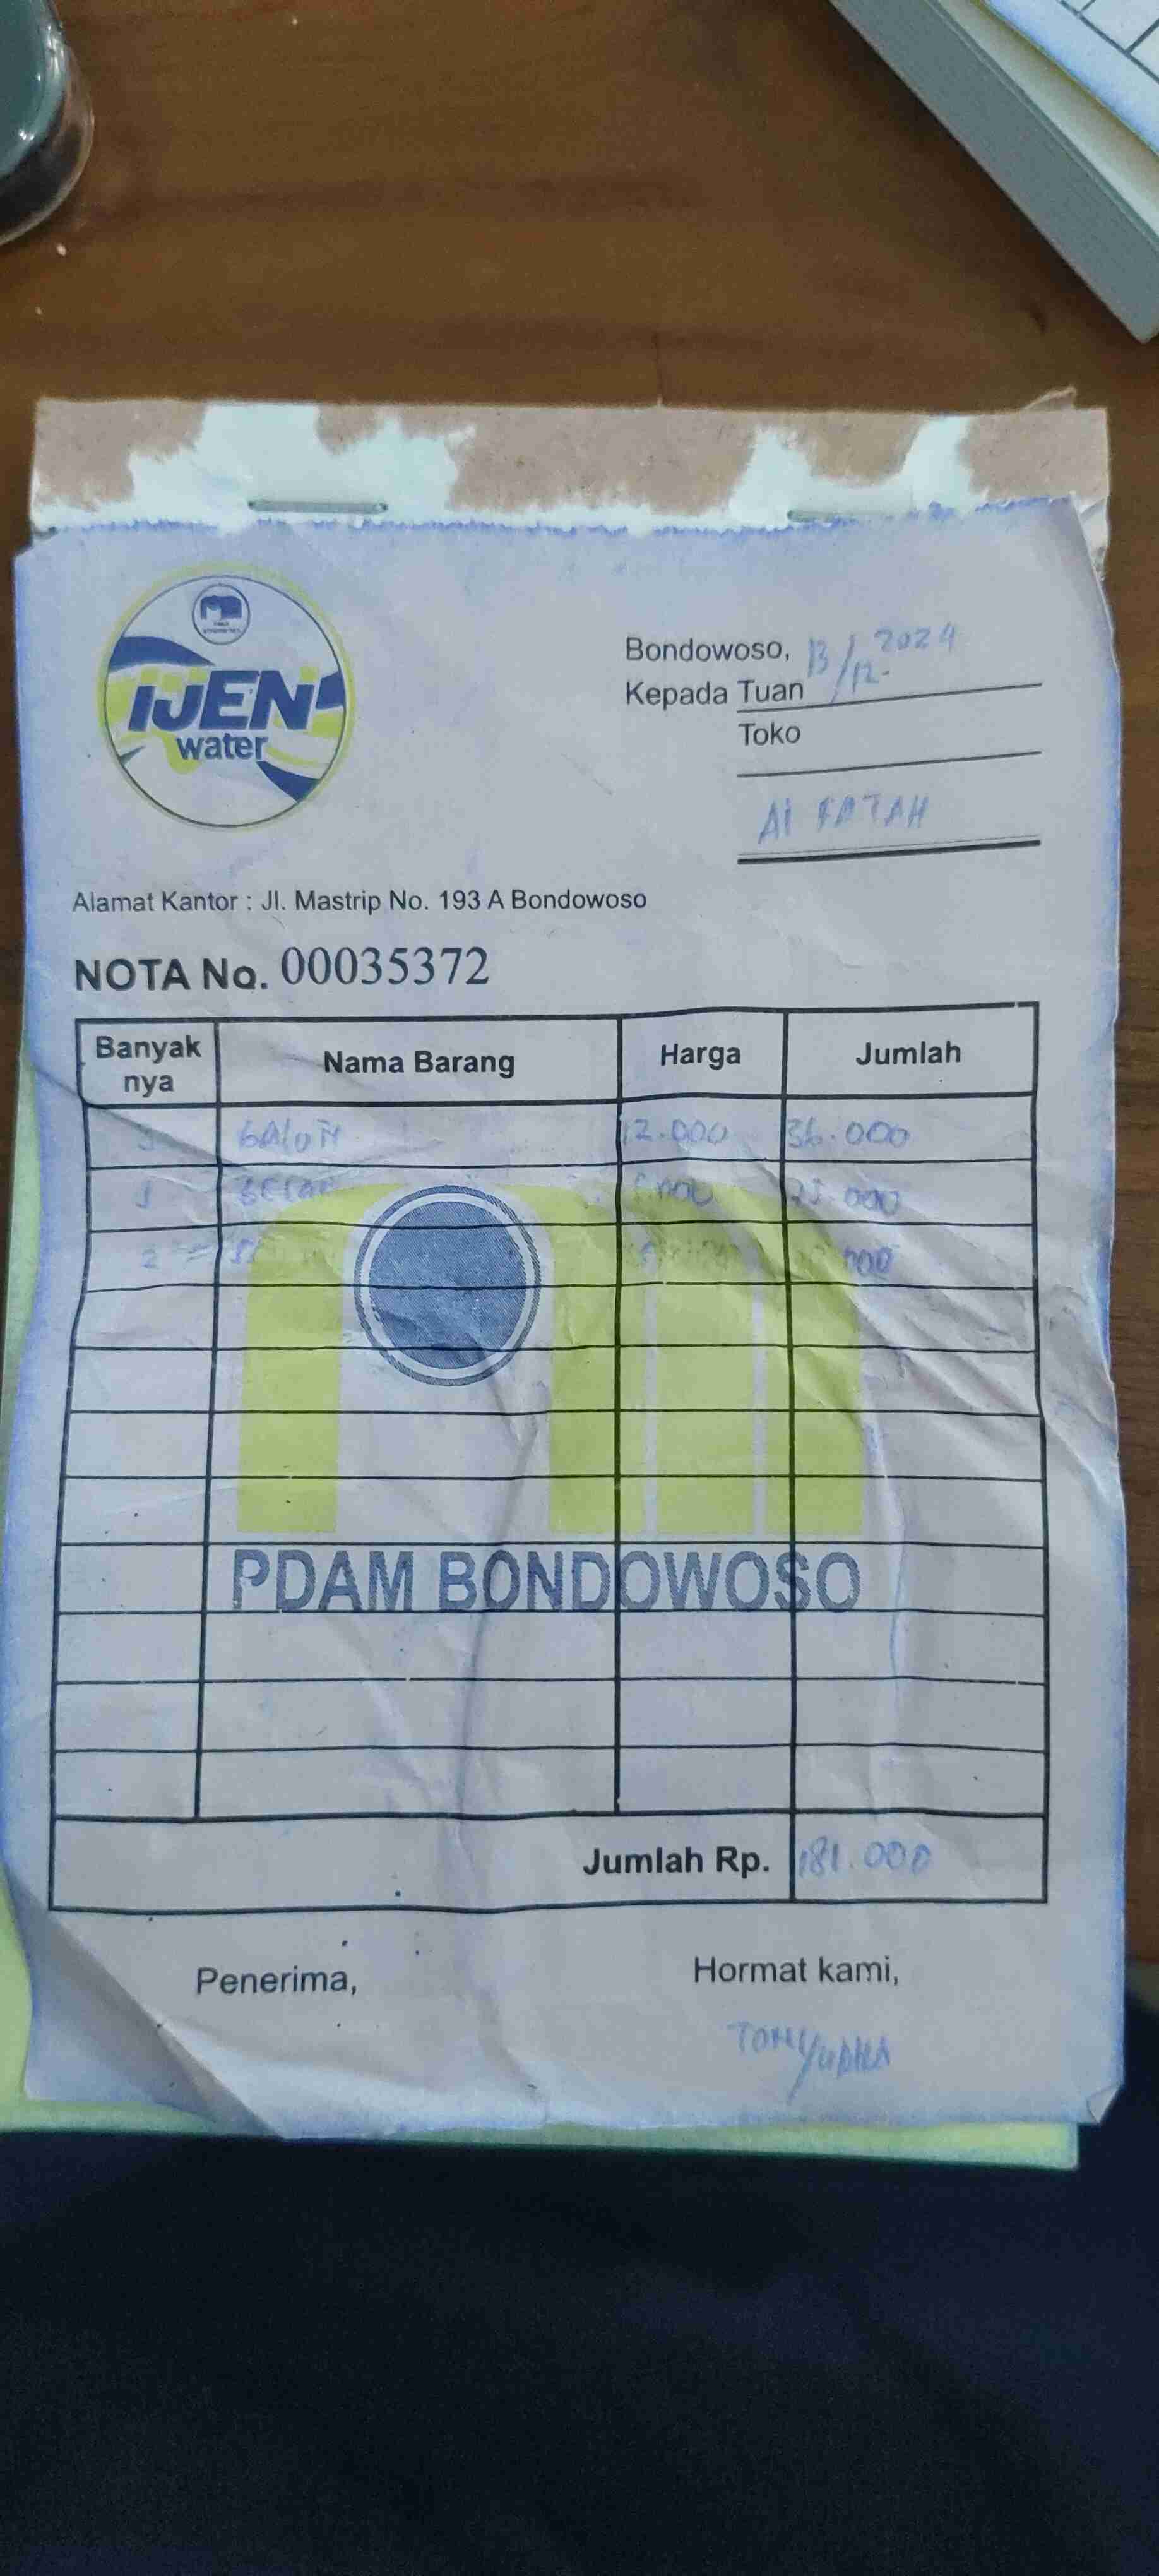 IJEN
water
Bondowoso, 13/12-2024
Kepada Tuan
Toko
Al FATAH
Alamat Kantor : Jl. Mastrip No. 193 A Bondowoso
NOTA No. 00035372
Banyak nya Nama Barang Harga Jumlah
3 GAlON 12.000 36.000
000
2 000
PDAM BONDOWOSO
Jumlah Rp. 181.000
Penerima, Hormat kami,
TONY YUDHA